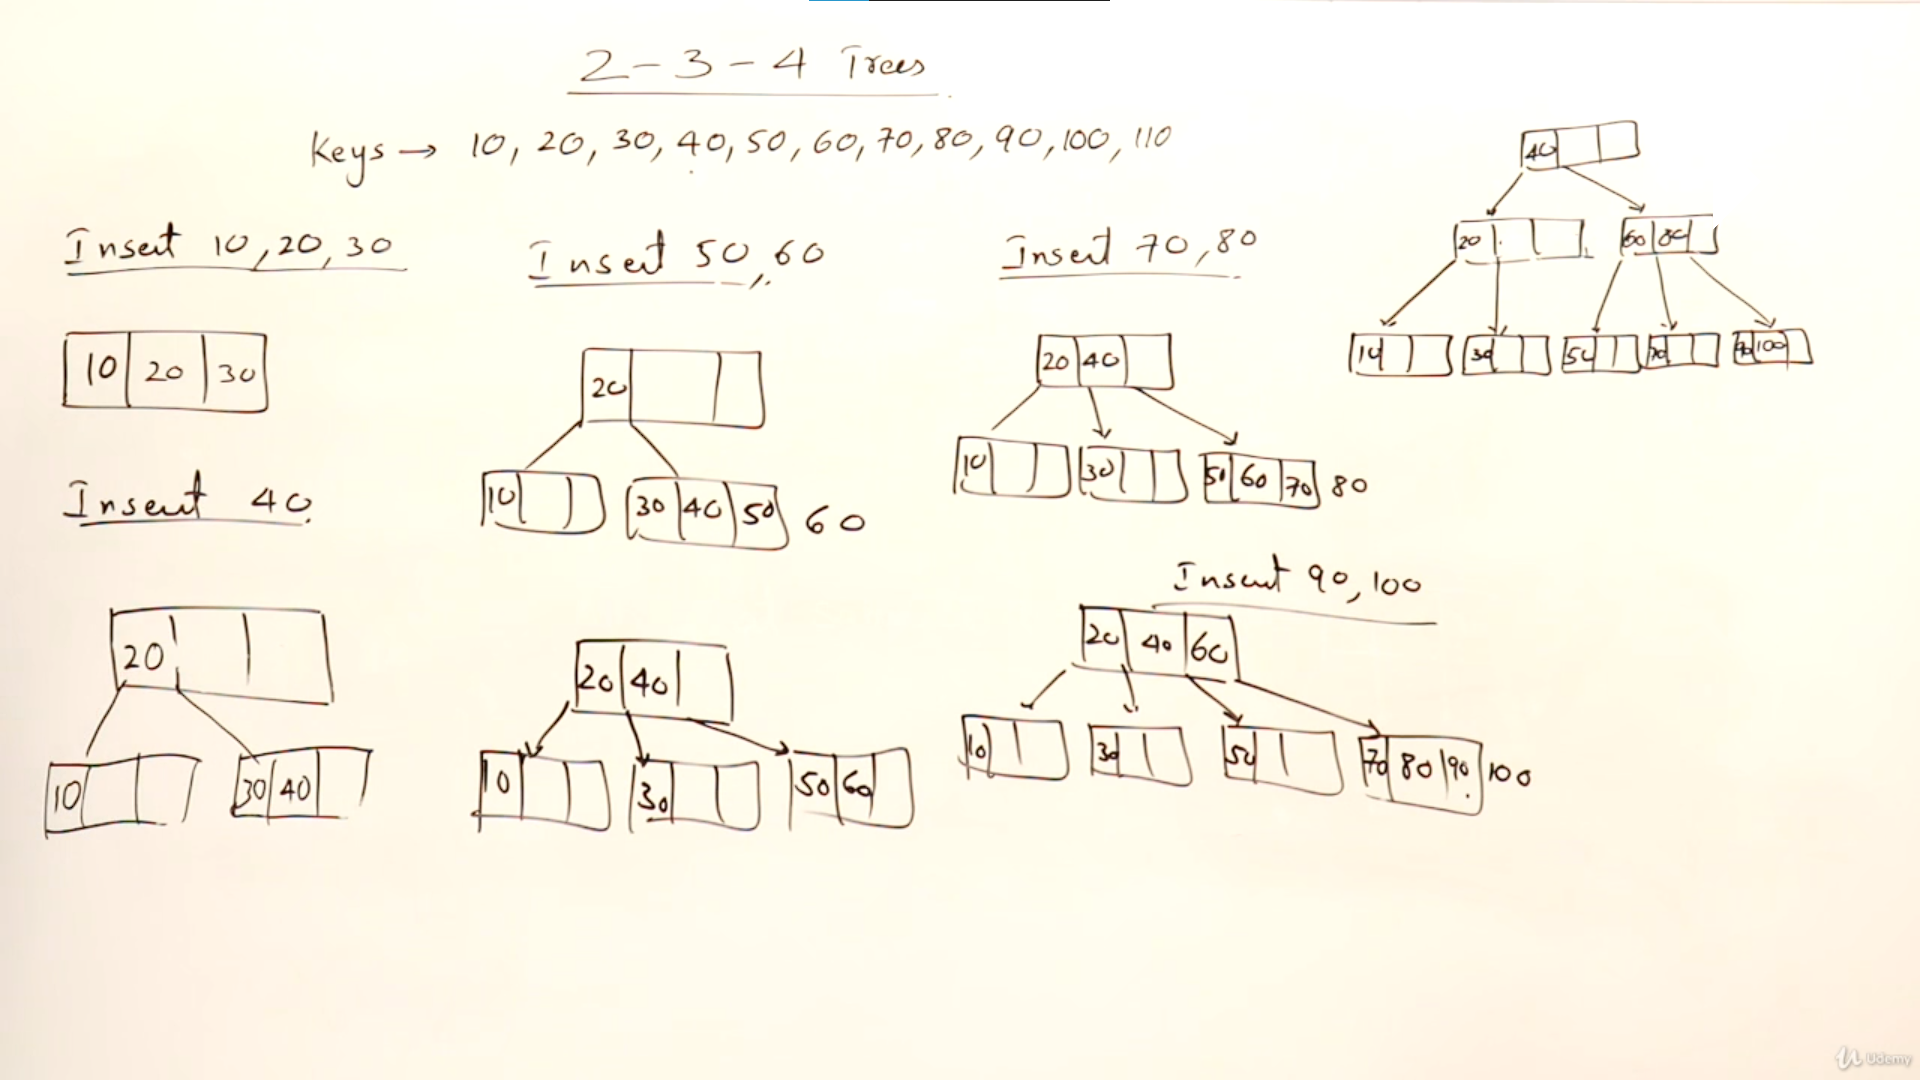 2-3-4 Trees
Keys → 10, 20, 30, 40, 50, 60, 70, 80, 90, 100, 110
Insert 10, 20, 30
10 20 30
Insert 40
20
10
30 40
Insert 50, 60
20
10
30 40 50 60
20 40
10
30
50 60
Insert 70, 80
20 40
10
30
50 60 70 80
Insert 90, 100
20 40 60
10
30
50
70 80 90 100
40
20
60 80
10
30
50
70
90 100
Udemy